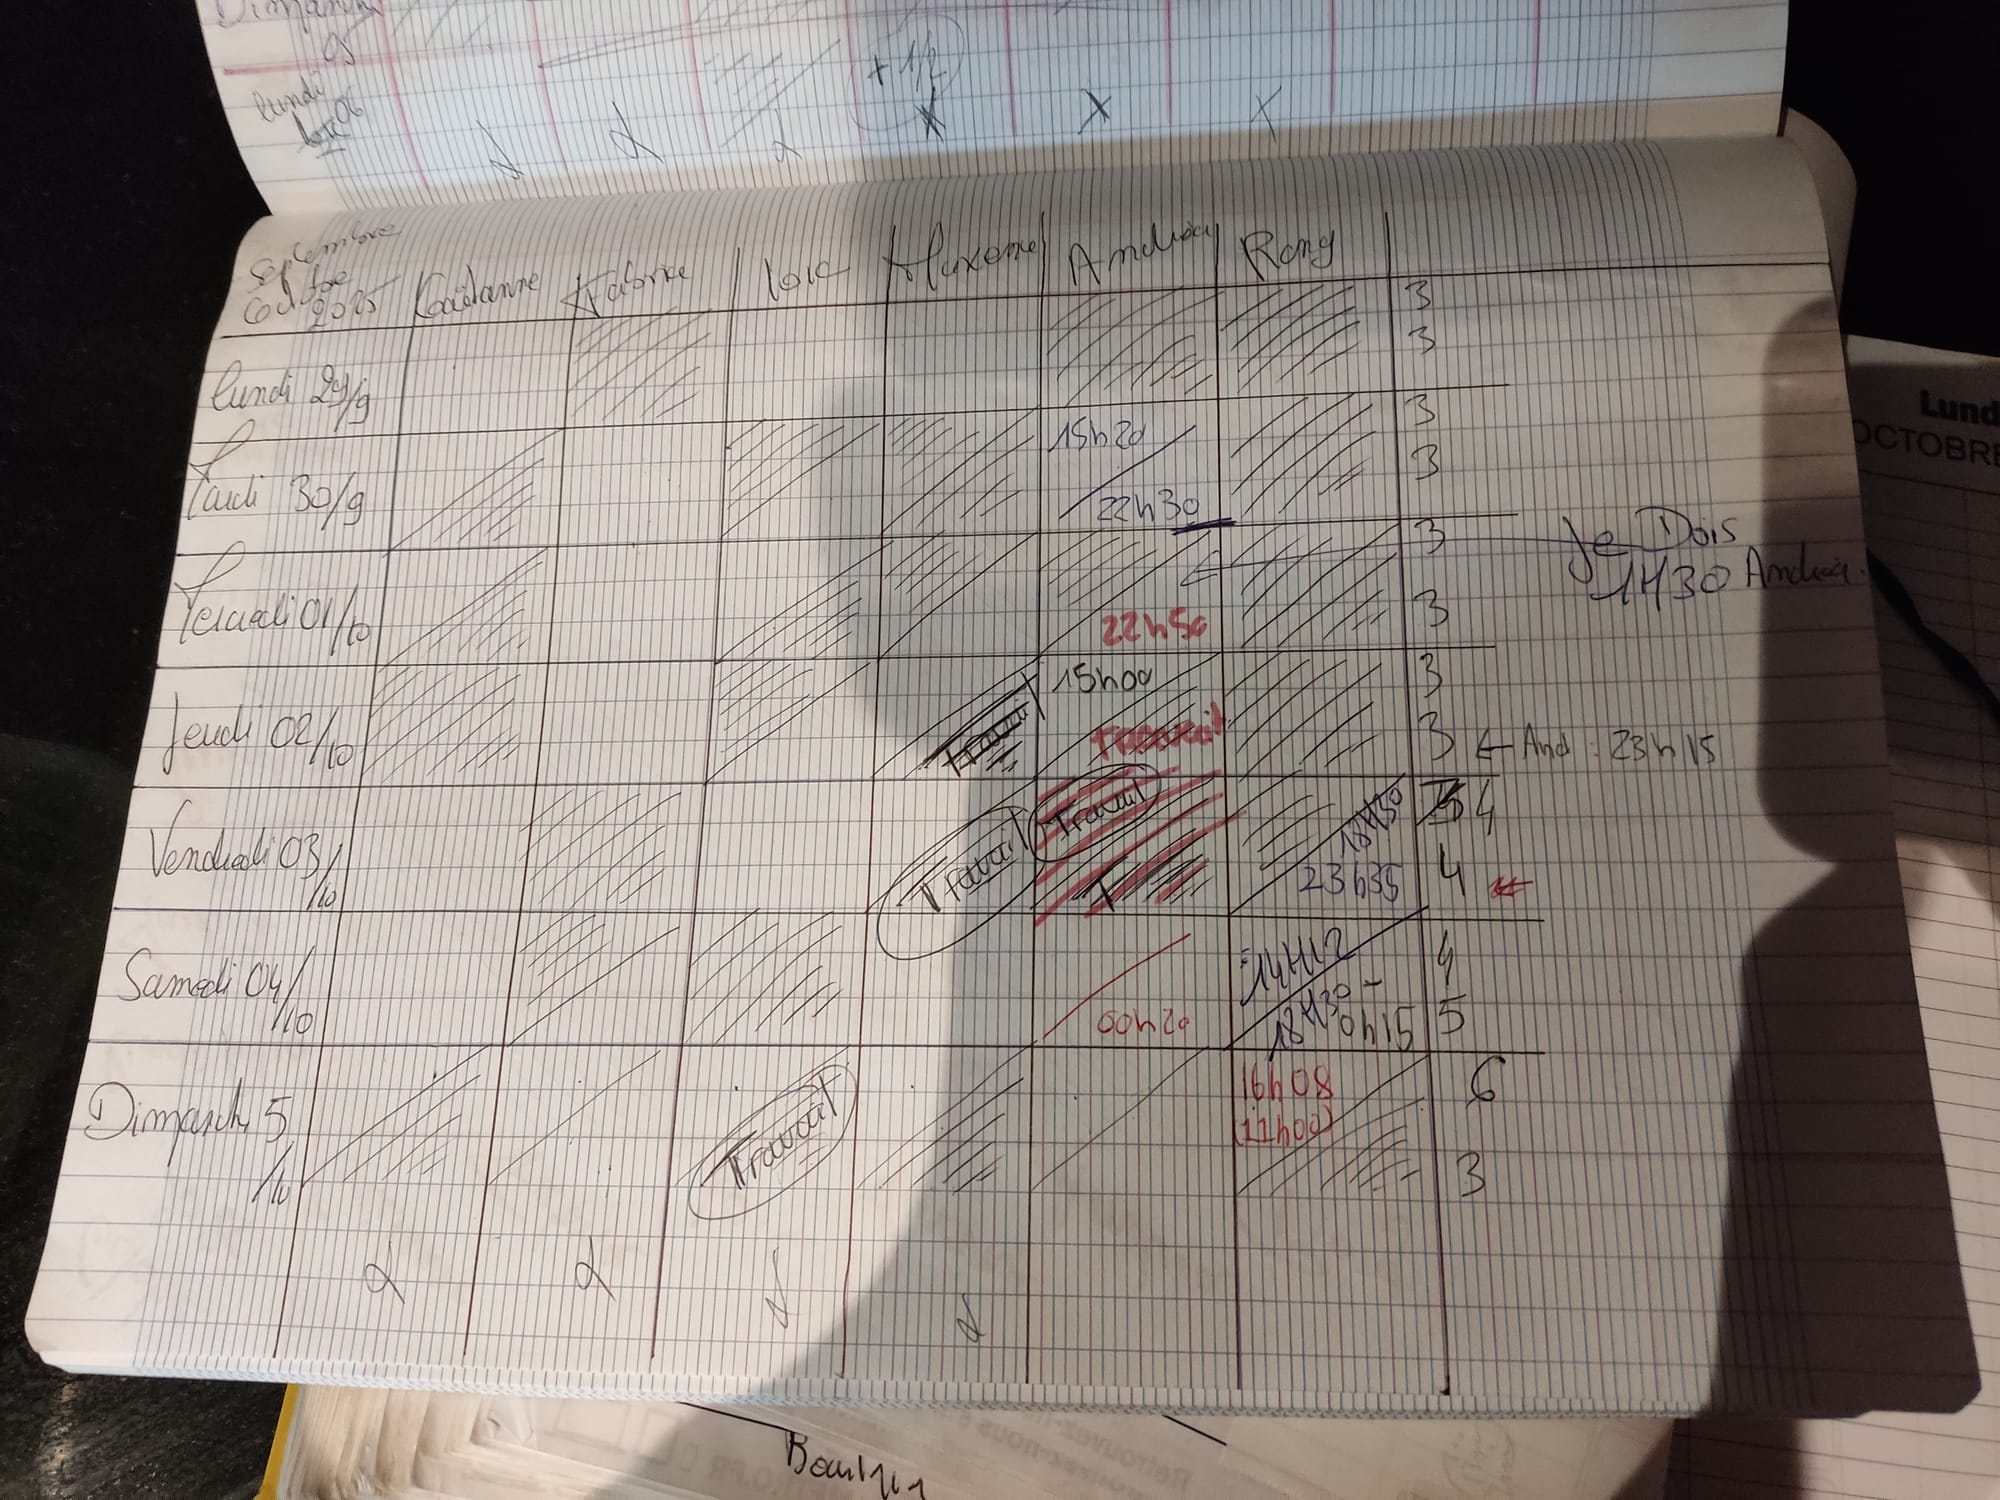 Dimanche
05
+ 1/2
lundi
06
Septembre
Octobre
2025
Fabrice
Loic
Maxence
Rony
3
3
lundi 29/9
3
15h20
3
Mardi 30/9
22h30
Je Dois
3
1H30
3
22h50
01/10
15h00
3
Travail
Travail
Jeudi 02/10
3 ← And : 23h15
Travail
18H30
4
Travail
Vendredi 03/10
23h35
4
14H12
4
Samedi 04/10
18H30 -
00h20
0h15
5
16h08
6
Dimanche 5/10
Travail
(11h00)
3
Lund
OCTOBRE